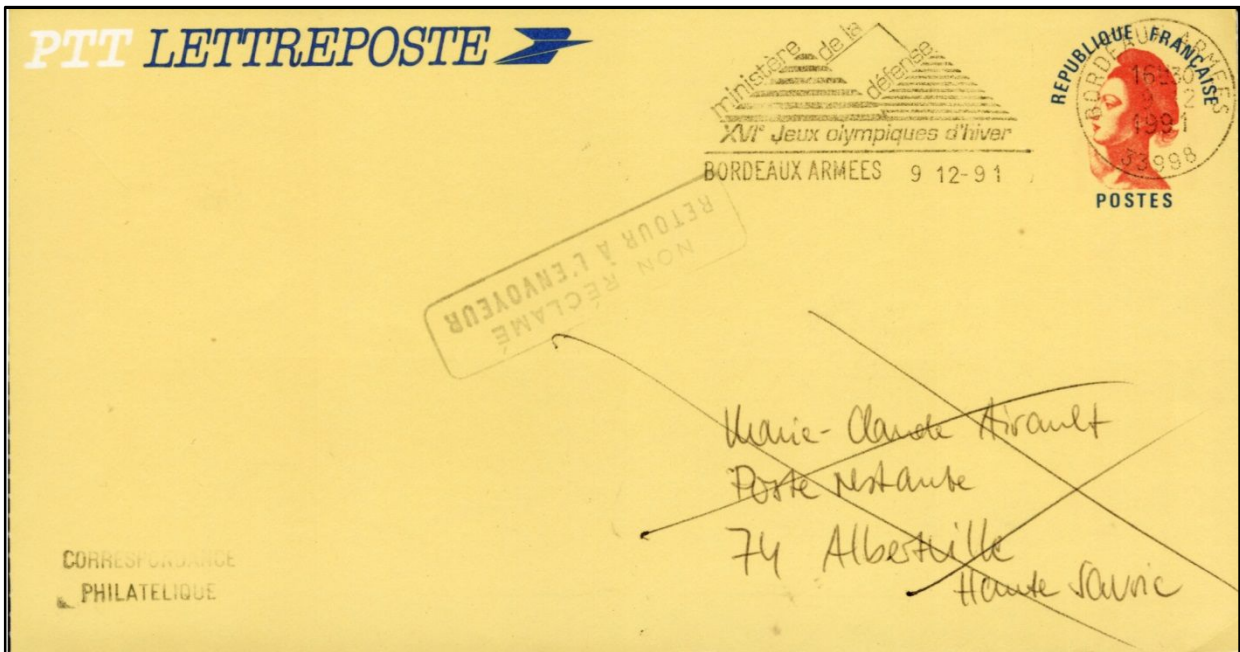 PTT LETTREPOSTE
ministère de la défense
XVIᵉ Jeux olympiques d'hiver
BORDEAUX ARMEES 9 12-91
REPUBLIQUE FRANÇAISE
POSTES
BORDEAUX ARMEES
16H30
9 12
1991
33998
NON RÉCLAMÉ
RETOUR À L'ENVOYEUR
Marie-Claude Airault
Poste restante
74 Albertville
Haute Savoie
CORRESPONDANCE
PHILATELIQUE